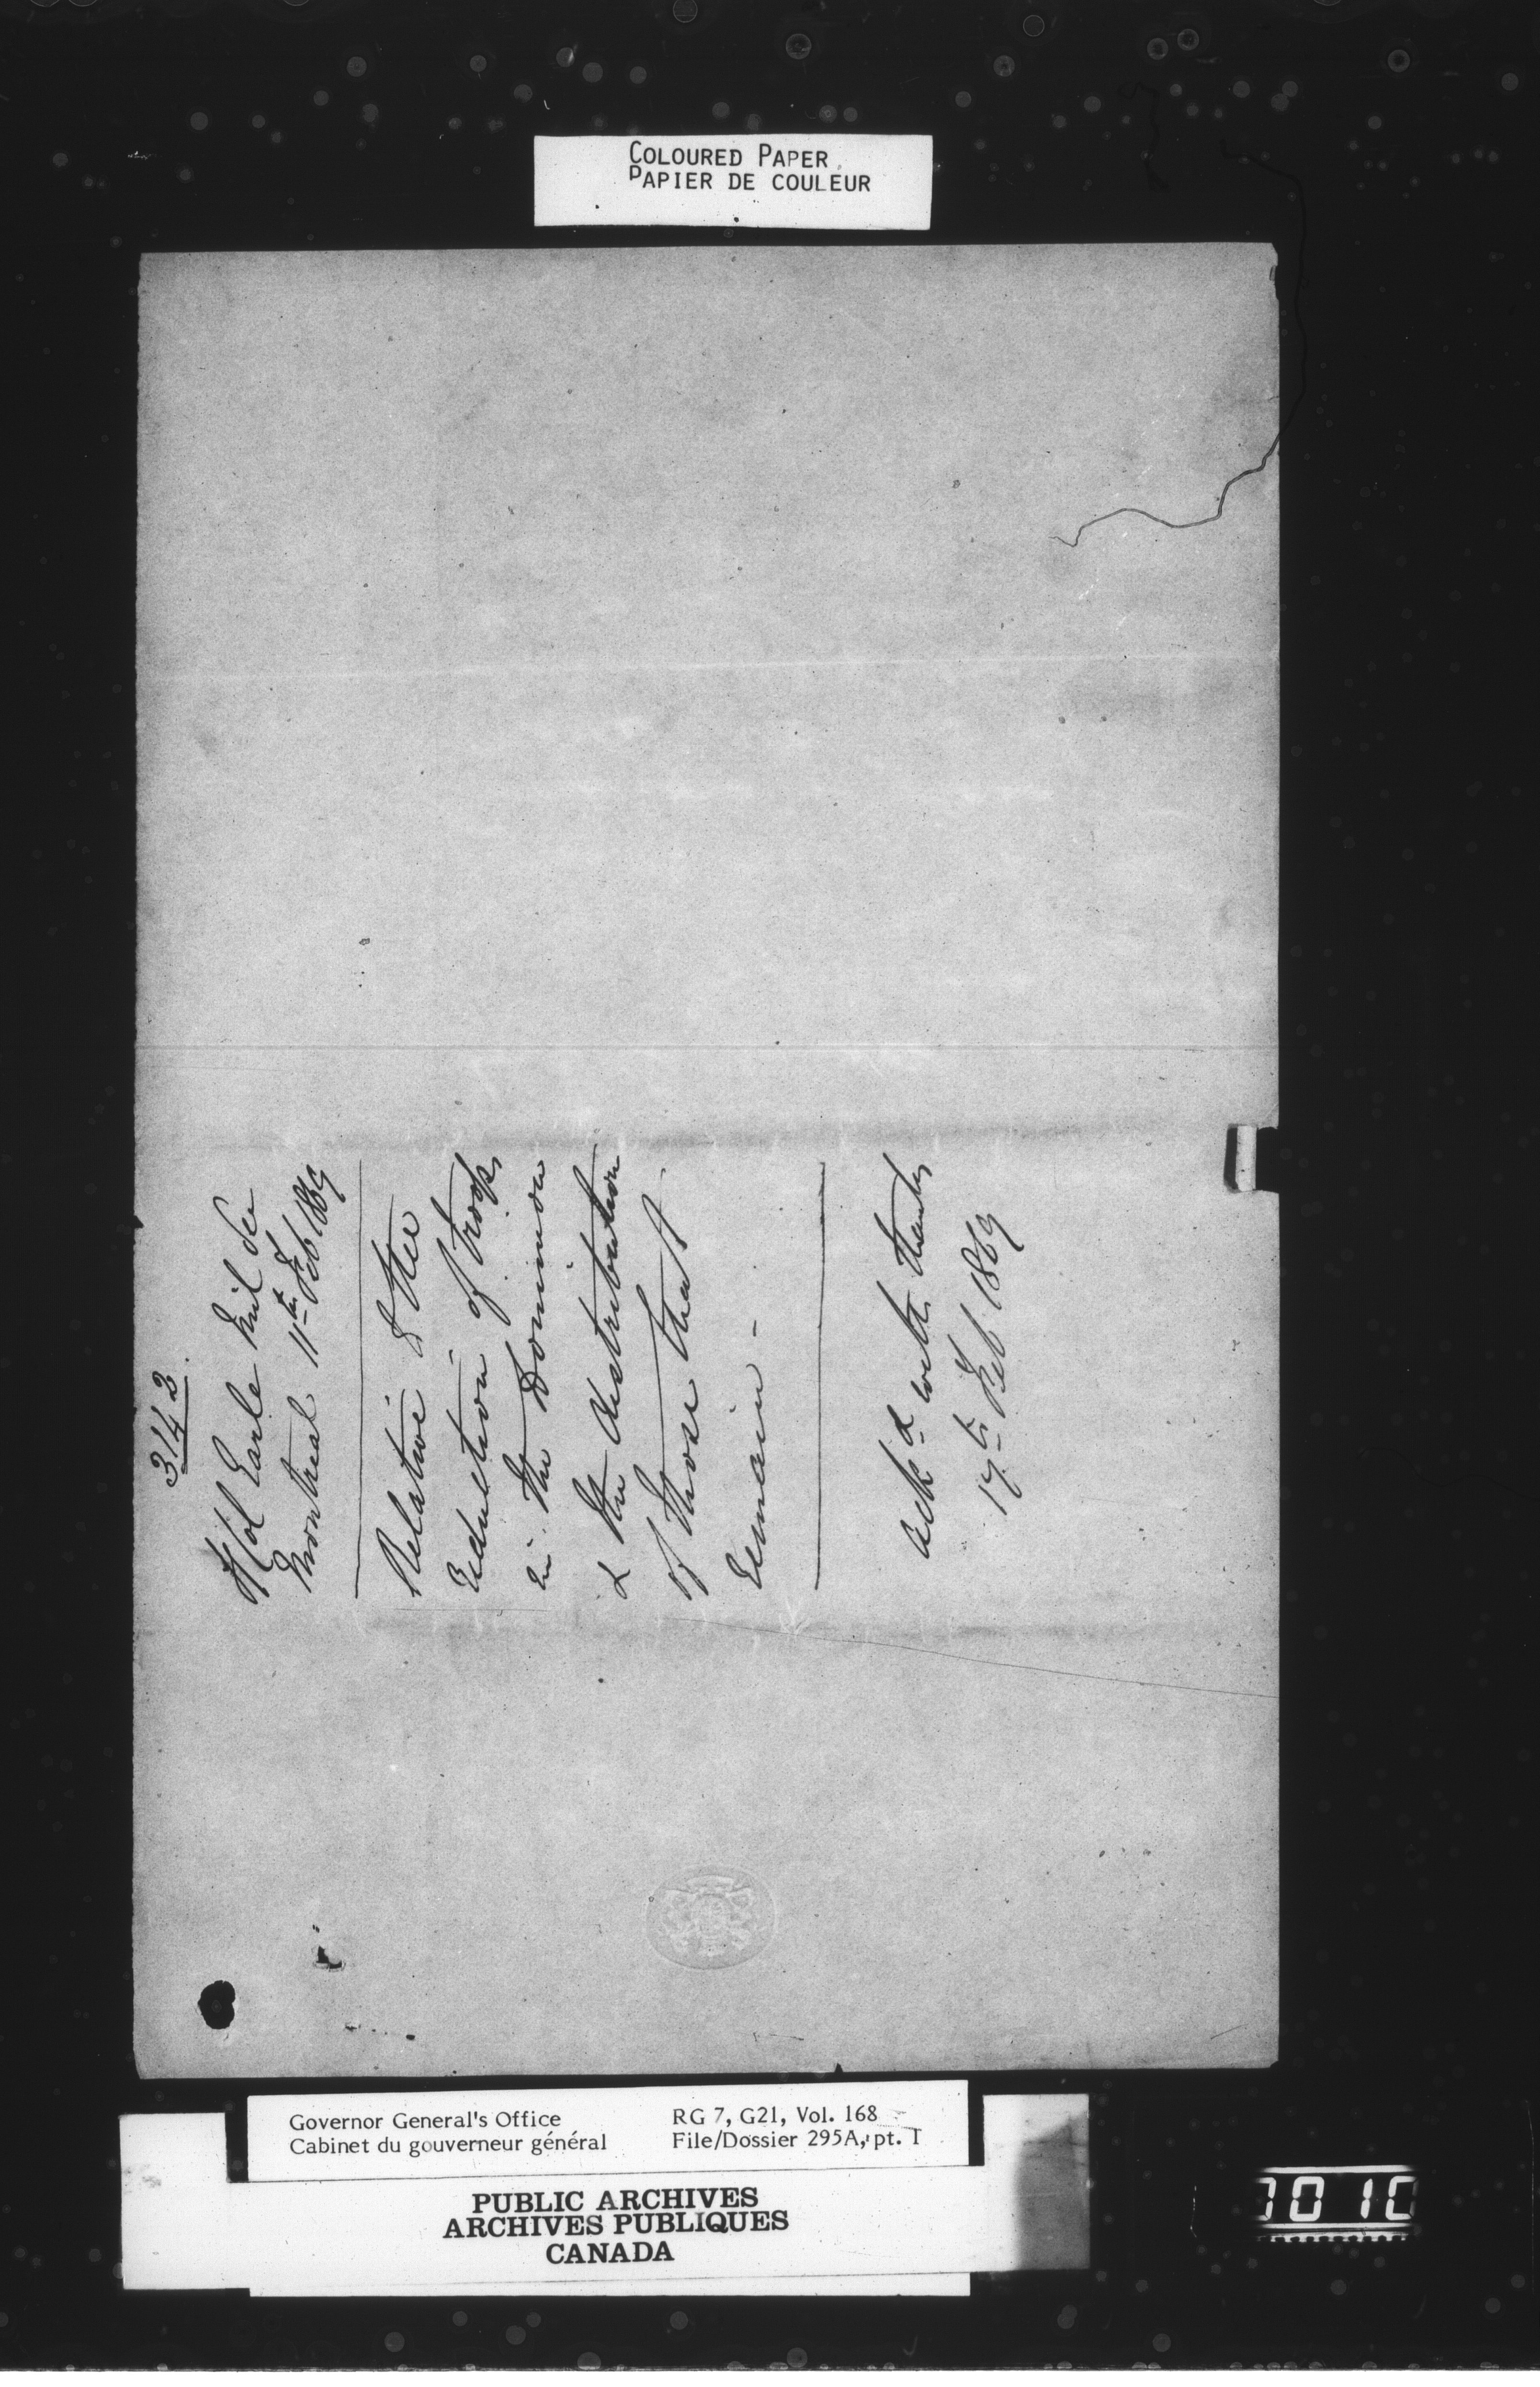 COLOURED PAPER
PAPIER DE COULEUR
3142
Col Earle Mil Sec
Montreal 11th Feb 1869
Relative to the
reduction of troops
in the Dominion
& the distribution
of those that
remain -
Ackd with thanks
17th Feb 1869
Governor General's Office
Cabinet du gouverneur général
RG 7, G21, Vol. 168
File/Dossier 295A, pt. 1
PUBLIC ARCHIVES
ARCHIVES PUBLIQUES
CANADA